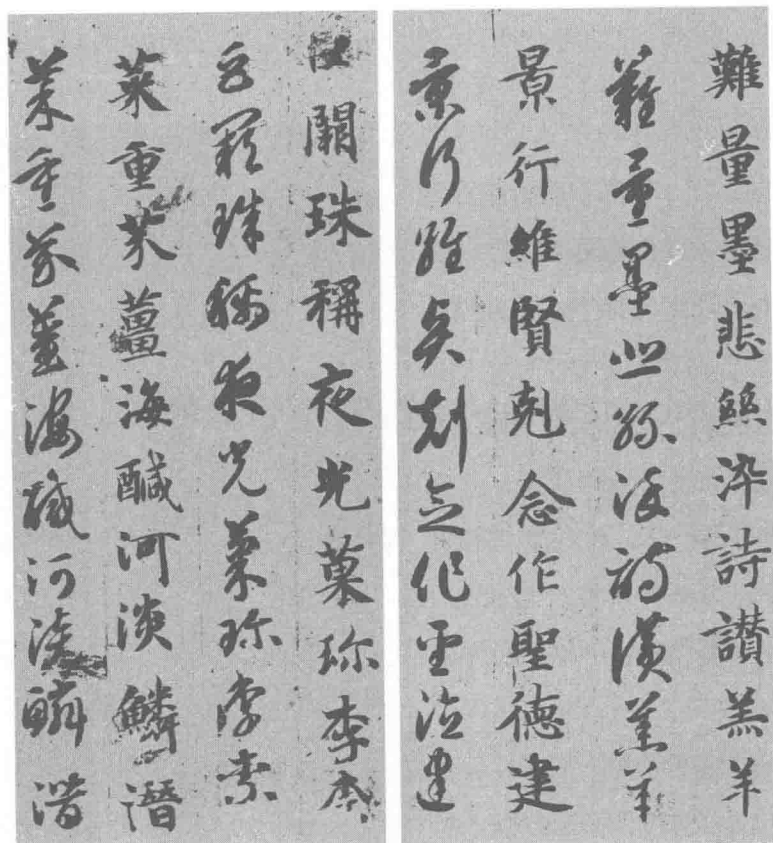 難量墨悲絲染詩讃羔羊
難量墨悲絲染詩讃羔羊
景行維賢剋念作聖德建
景行維賢剋念作聖德建
巨闕珠稱夜光菓珎李柰
巨闕珠稱夜光菓珎李柰
菜重芥薑海醎河淡鱗潛
菜重芥薑海醎河淡鱗潛